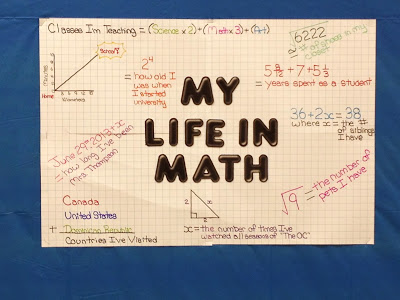 Classes I'm Teaching = (Science x 2) + (Math x 3) + (Art)
School!
Minutes
Home
Kilometers
2⁴
= how old I
was when
I started
university
√6222
# of shoes in my
closet
5 9/12 + 7 + 5 1/3
= years spent as a student
MY
LIFE IN
MATH
36 + 2x = 38
where x = the #
of siblings
I have
June 29th 2013 + x
= how long I've been
Mrs. Thompson
√9 = the number of
pets I have
Canada
United States
+ Dominican Republic
Countries I've Visited
2
x
2
x = the number of times I've
watched all seasons of "The OC"